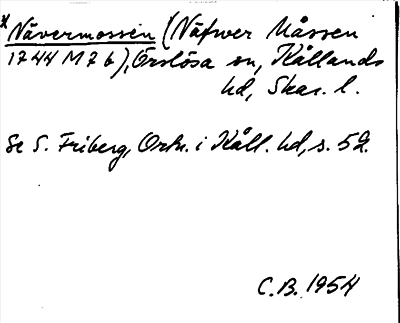 *Nävermossen (Näfwer Måssen
1744 M 7 b), Örslösa sn, Kållands
hd, Skar. l.
Se S. Friberg, Ortn. i Kåll. hd, s. 52.
C.B. 1954